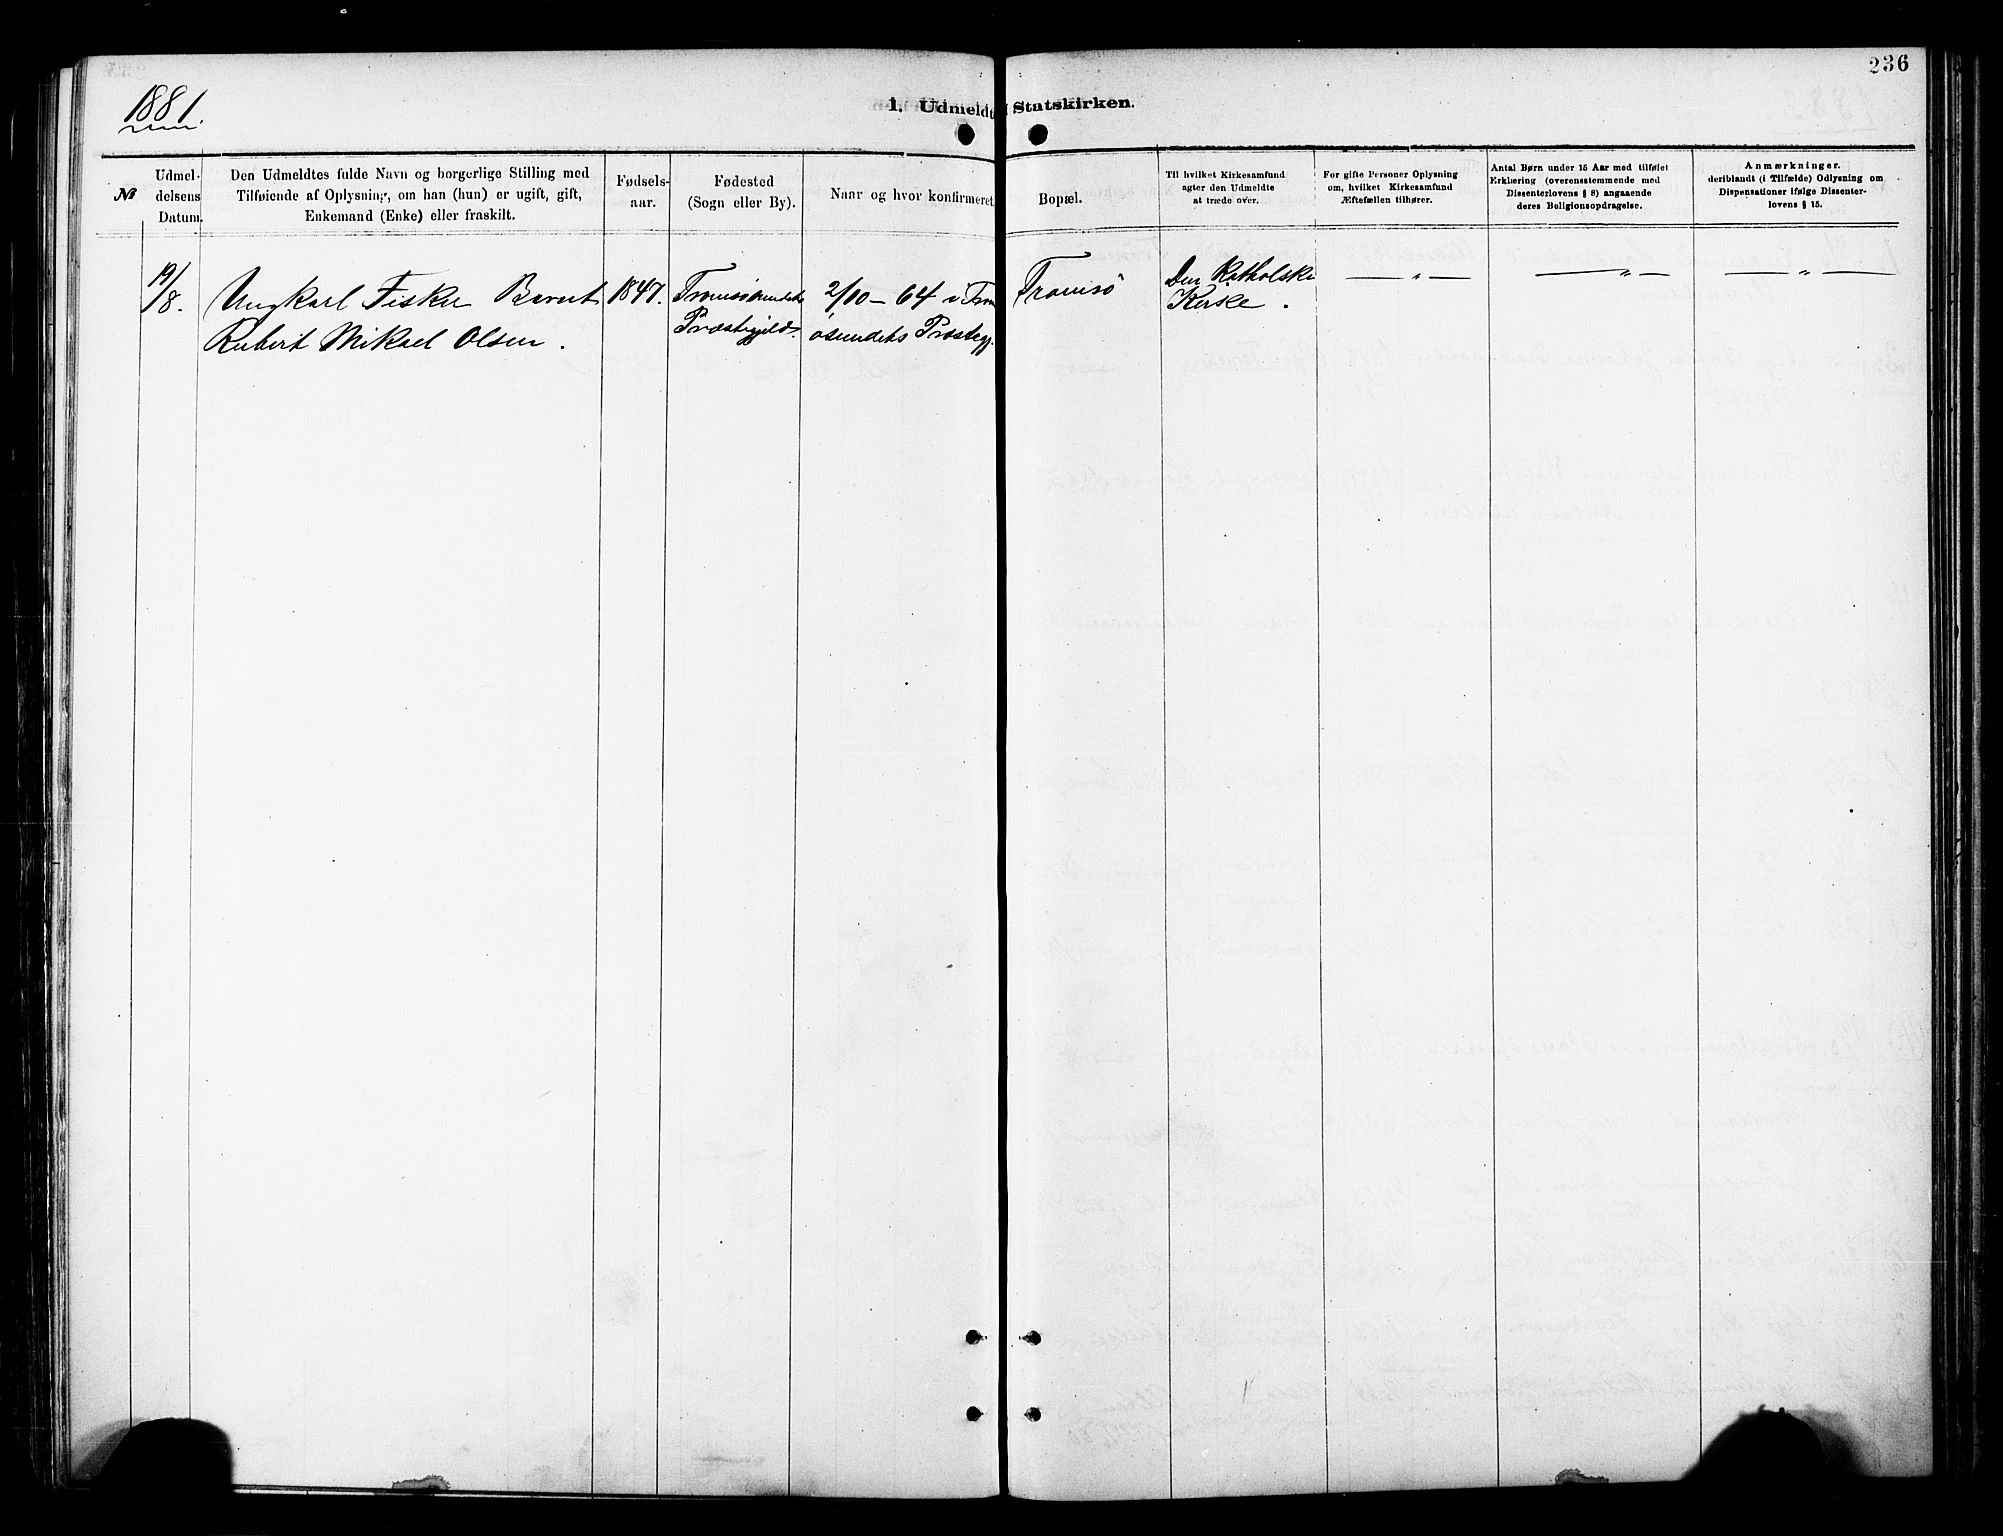 236
1881.
1. Udmeldt Statskirken.
№
Udmel-
delsens
Datum.
Den Udmeldtes fulde Navn og borgerlige Stilling med
Tilføiende af Oplysning, om han (hun) er ugift, gift,
Enkemand (Enke) eller fraskilt.
Fødsels-
aar.
Fødested
(Sogn eller By).
Naar og hvor konfirmeret.
Bopæl.
Til hvilket Kirkesamfund
agter den Udmeldte
at træde over.
For gifte Personer Oplysning
om, hvilket Kirkesamfund
Ægtefællen tilhører.
Antal Børn under 15 Aar med tilføiet
Erklæring (overensstemmende med
Dissenterlovens § 8) angaaende
deres Religionsopdragelse.
Anmærkninger.
deriblandt (i Tilfælde) Odlysning om
Dispensationer ifølge Dissenter-
lovens § 15.
19/8.
Ungkarl Fisker Bernt
Rubert Mikael Olsen.
1847.
Tromsösundets
Præstegjeld.
2/10 - 64 i Trom
ösundets Præstegj.
Tromsö
Den Katholske
Kirke.
— " —
— " —
— " —